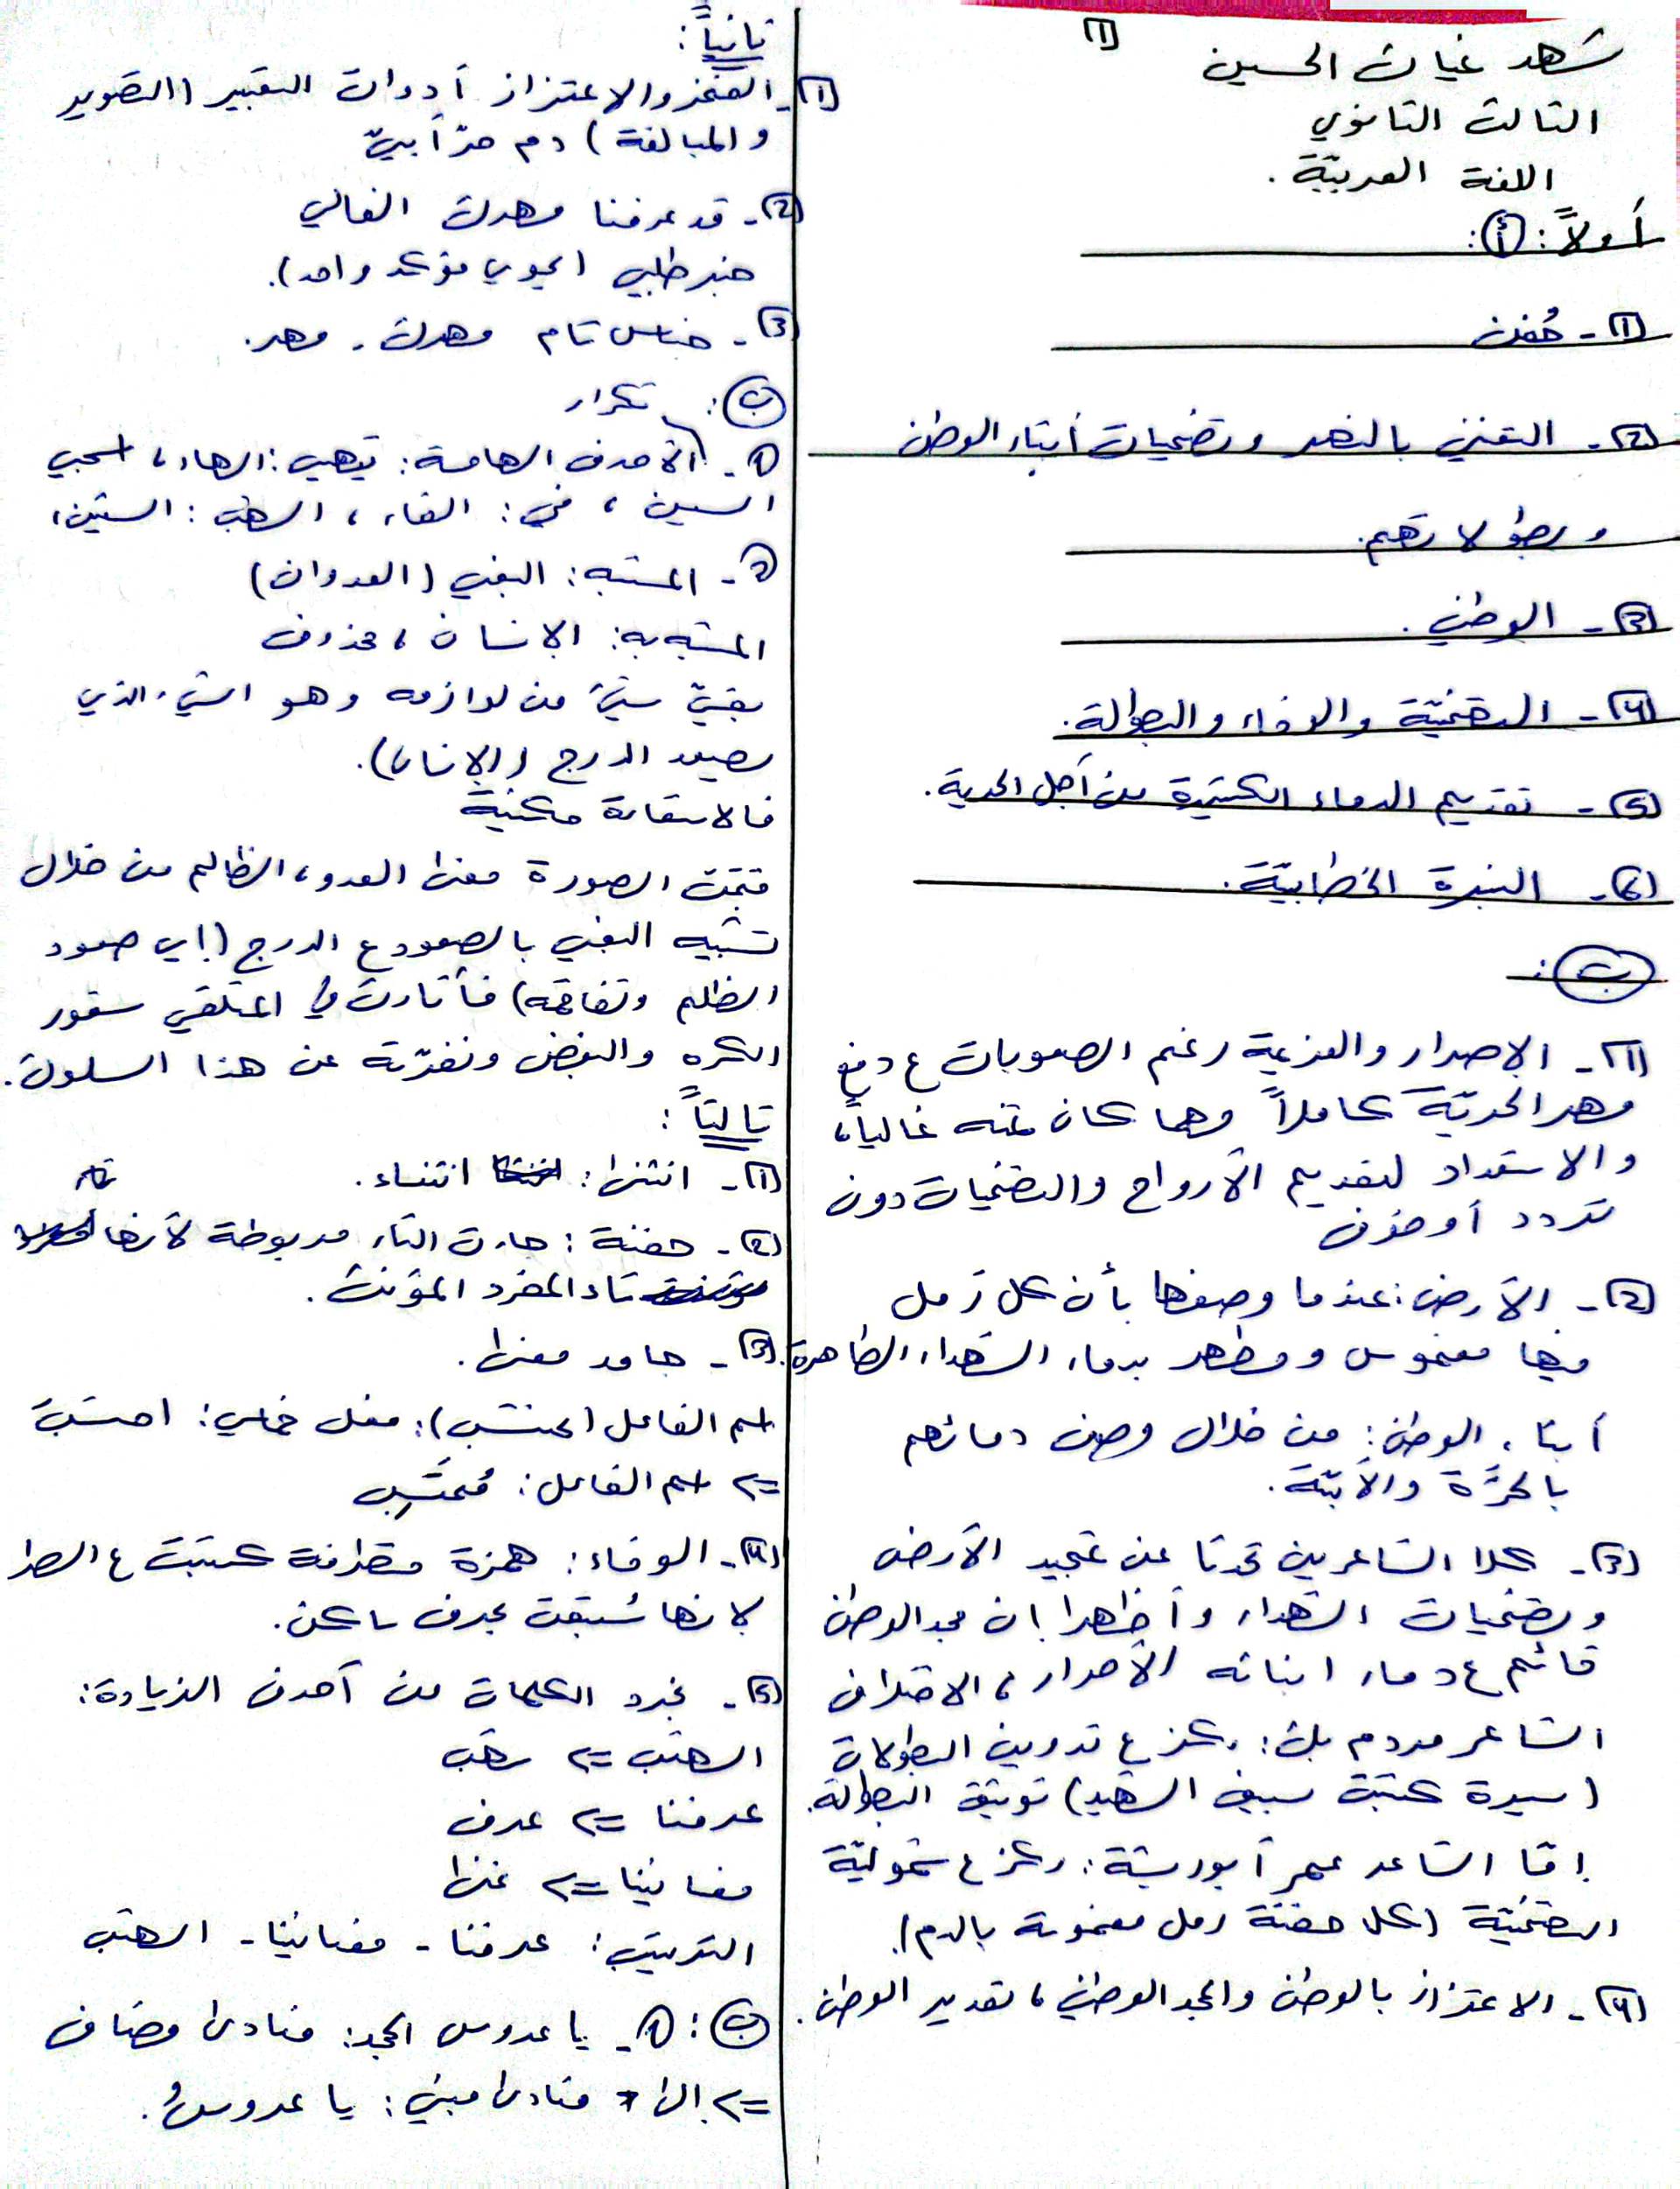 شهد غياث الحسين (1)
الثالث الثانوي
اللغة العربيّة .
أولاً: (أ):
(1)- حُفن
(2)- التغني بالنصر وتضحيات أبناء الوطن
وبطولاتهم.
(3)- الوطني .
(4)- التضحيّة والوفاء والبطولة.
(5)- تقديم الدماء الكثيرة من أجل الحرية.
(6)- النبرة الخطابيّة.
(ب):
(1)- الإصرار والعزيمة رغم الصعوبات ع دفع
مهر الحريّة كاملاً مهما كان ثمنه غالياً،
والاستعداد لتقديم الأرواح والتضحيات دون
تردد أو خوف
(2)- الأرض: عندما وصفها بأن كل رمل
فيها مغموس ومطهر بدماء الشهداء الطاهرة.
أبناء الوطن: من خلال وصف دمائهم
بالحرَّة والأبيّة.
(3)- كلا الشاعرين تحدثا عن تمجيد الأرض
وتضحيات الشهداء وأظهرا إن مجد الوطن
قائم ع دماء ابنائه الأحرار، الاختلاف
الشاعر مردم بك: ركز ع تدوين البطولات
(سيرة كتبت بسيف الشهيد) توثيق البطولة.
إمّا الشاعر عمر أبو ريشة: ركز ع شموليّة
التضحيّة (كل حفنة رمل مغموسة بالدم).
(4)- الاعتزاز بالوطن والمجد الوطني، تقدير الوطن.
ثانياً:
(1)- الفخر والاعتزاز أدوات التعبير (التصوير
والمبالغة) دم حرّ أبيّ
(2)- قد عرفنا مهرك الغالي
خبر طلبي (يحوي مؤكد واحد).
(3)- جناس تام مهرك - مهر.
(ب): تكرار
1- الأحرف الهامسة: تيهي: الهاء، اسحبي
السين، في: الفاء، الشهب: الشين،
2- المشبه: البغي (العدوان)
المشبه به: الإنسان، محذوف
بقيَ شيئ من لوازمه وهو الشيء الذي
يصعد الدرج (الإنسان).
فالاستعارة مكنيّة
قبّحت الصورة معنى العدو، الظالم من خلال
تشبيه البغي بالصعود ع الدرج (إي صعود
الظلم وتفاقمه) فأثارت في المتلقي شعور
الكره والبغض ونفرّته عن هذا السلوك.
ثالثاً:
(1)- انثنى: انثناء.
(2)- حفنة: جاءت التاء مربوطة لأنها تاء
تاء المفرد المؤنث.
(3)- جامد معنى.
اسم الفاعل (محتسب): فعل خماسي: احتسَبَ
=> اسم الفاعل: مُحتَسِب
(4)- الوفاء: همزة متطرفة كتبت ع السطر
لانها سُبقت بحرف ساكن.
(5)- نجرد الكلمات من أحرف الزيادة:
الشهب => شهب
عرفنا => عرف
مغانينا => غنى
الترتيب: عرفنا - مغانينا - الشهب
(ب): 1- يا عروس المجد: منادى مضاف
=> إلى منادى مبني: يا عروسُ.